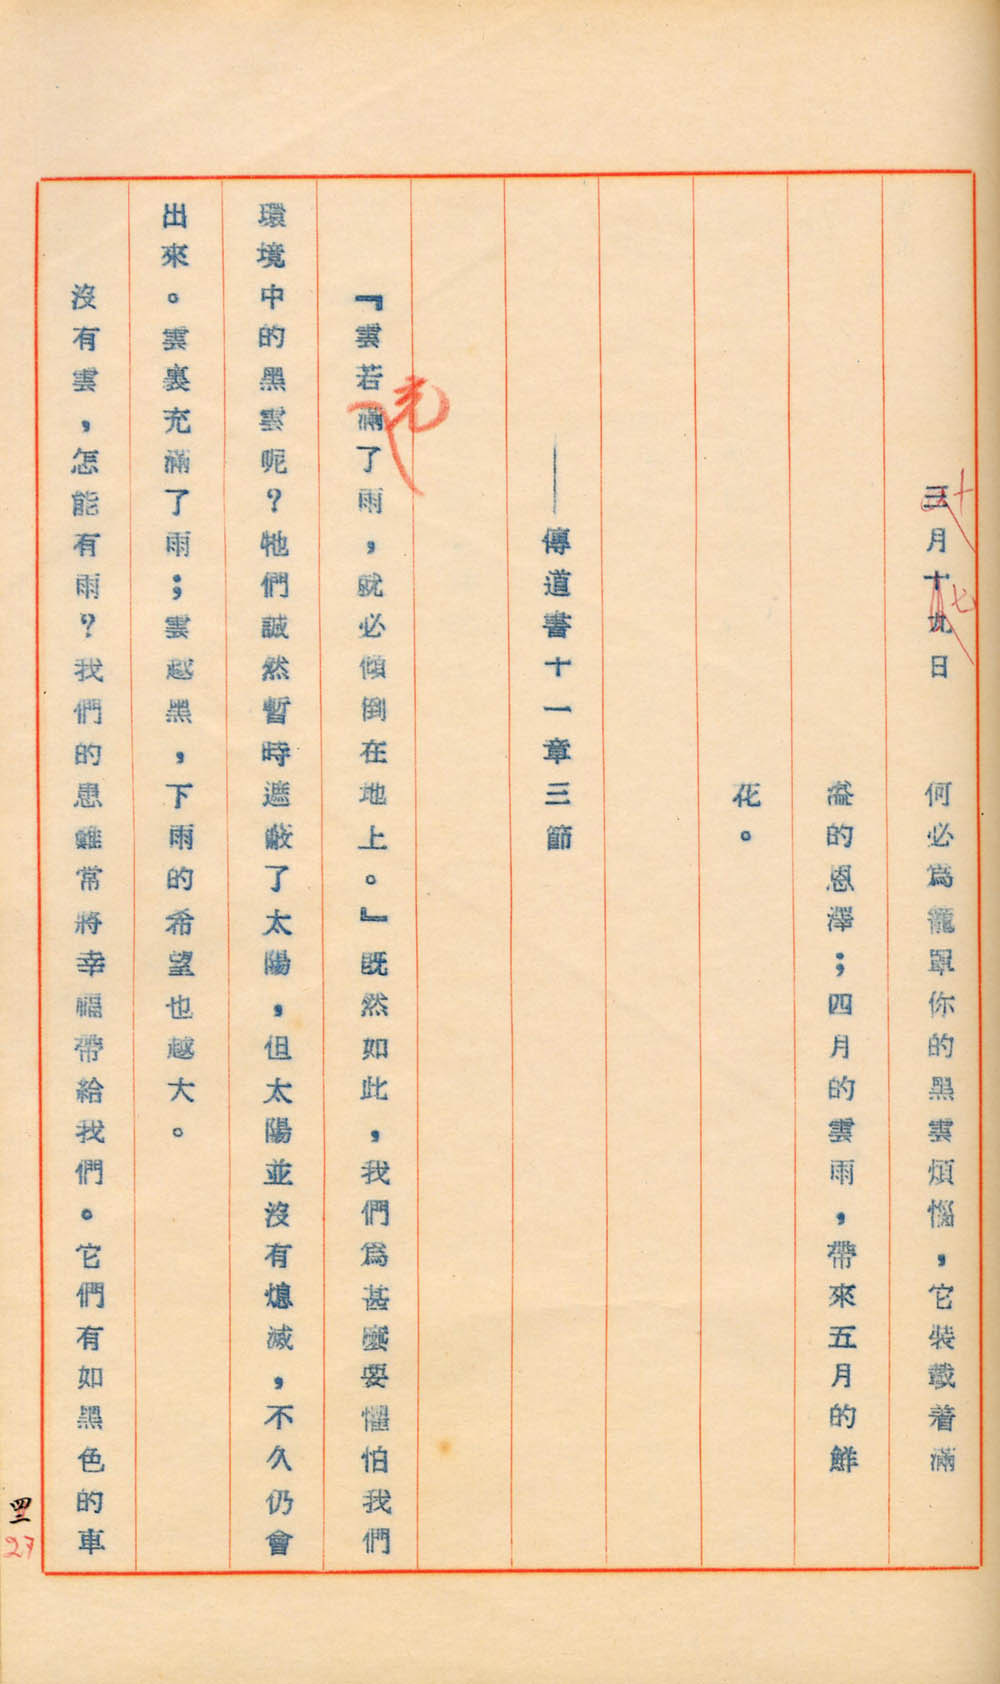 三月十九日　何必爲籠罩你的黑雲煩惱，它裝載着滿
十
七
溢的恩澤；四月的雲雨，帶來五月的鮮
花。
——傳道書十一章三節
『雲若滿了雨，就必傾倒在地上。』既然如此，我們爲甚麼要懼怕我們
充
環境中的黑雲呢？牠們誠然暫時遮蔽了太陽，但太陽並沒有熄滅，不久仍會
出來。雲裏充滿了雨；雲越黑，下雨的希望也越大。
沒有雲，怎能有雨？我們的患難常將幸福帶給我們。它們有如黑色的車
27